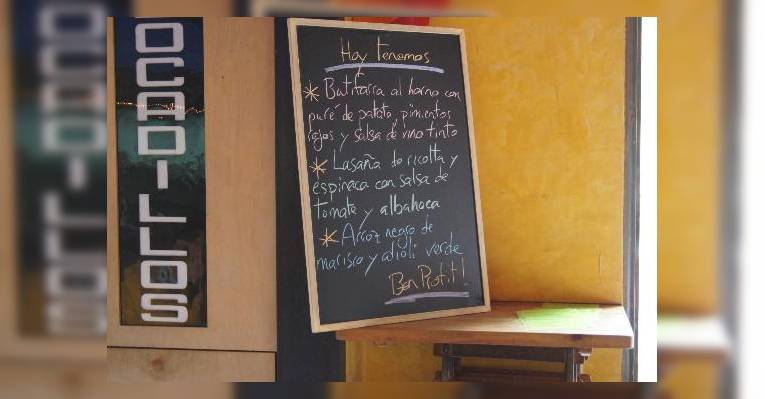 OCADILLOS
Hoy tenemos
* Butifarra al horno con
puré de patata, pimientos
rojos y salsa de vino tinto
* Lasaña de ricotta y
espinaca con salsa de
tomate y albahaca
* Arroz negro de
marisco y alioli verde
Bon Profit!